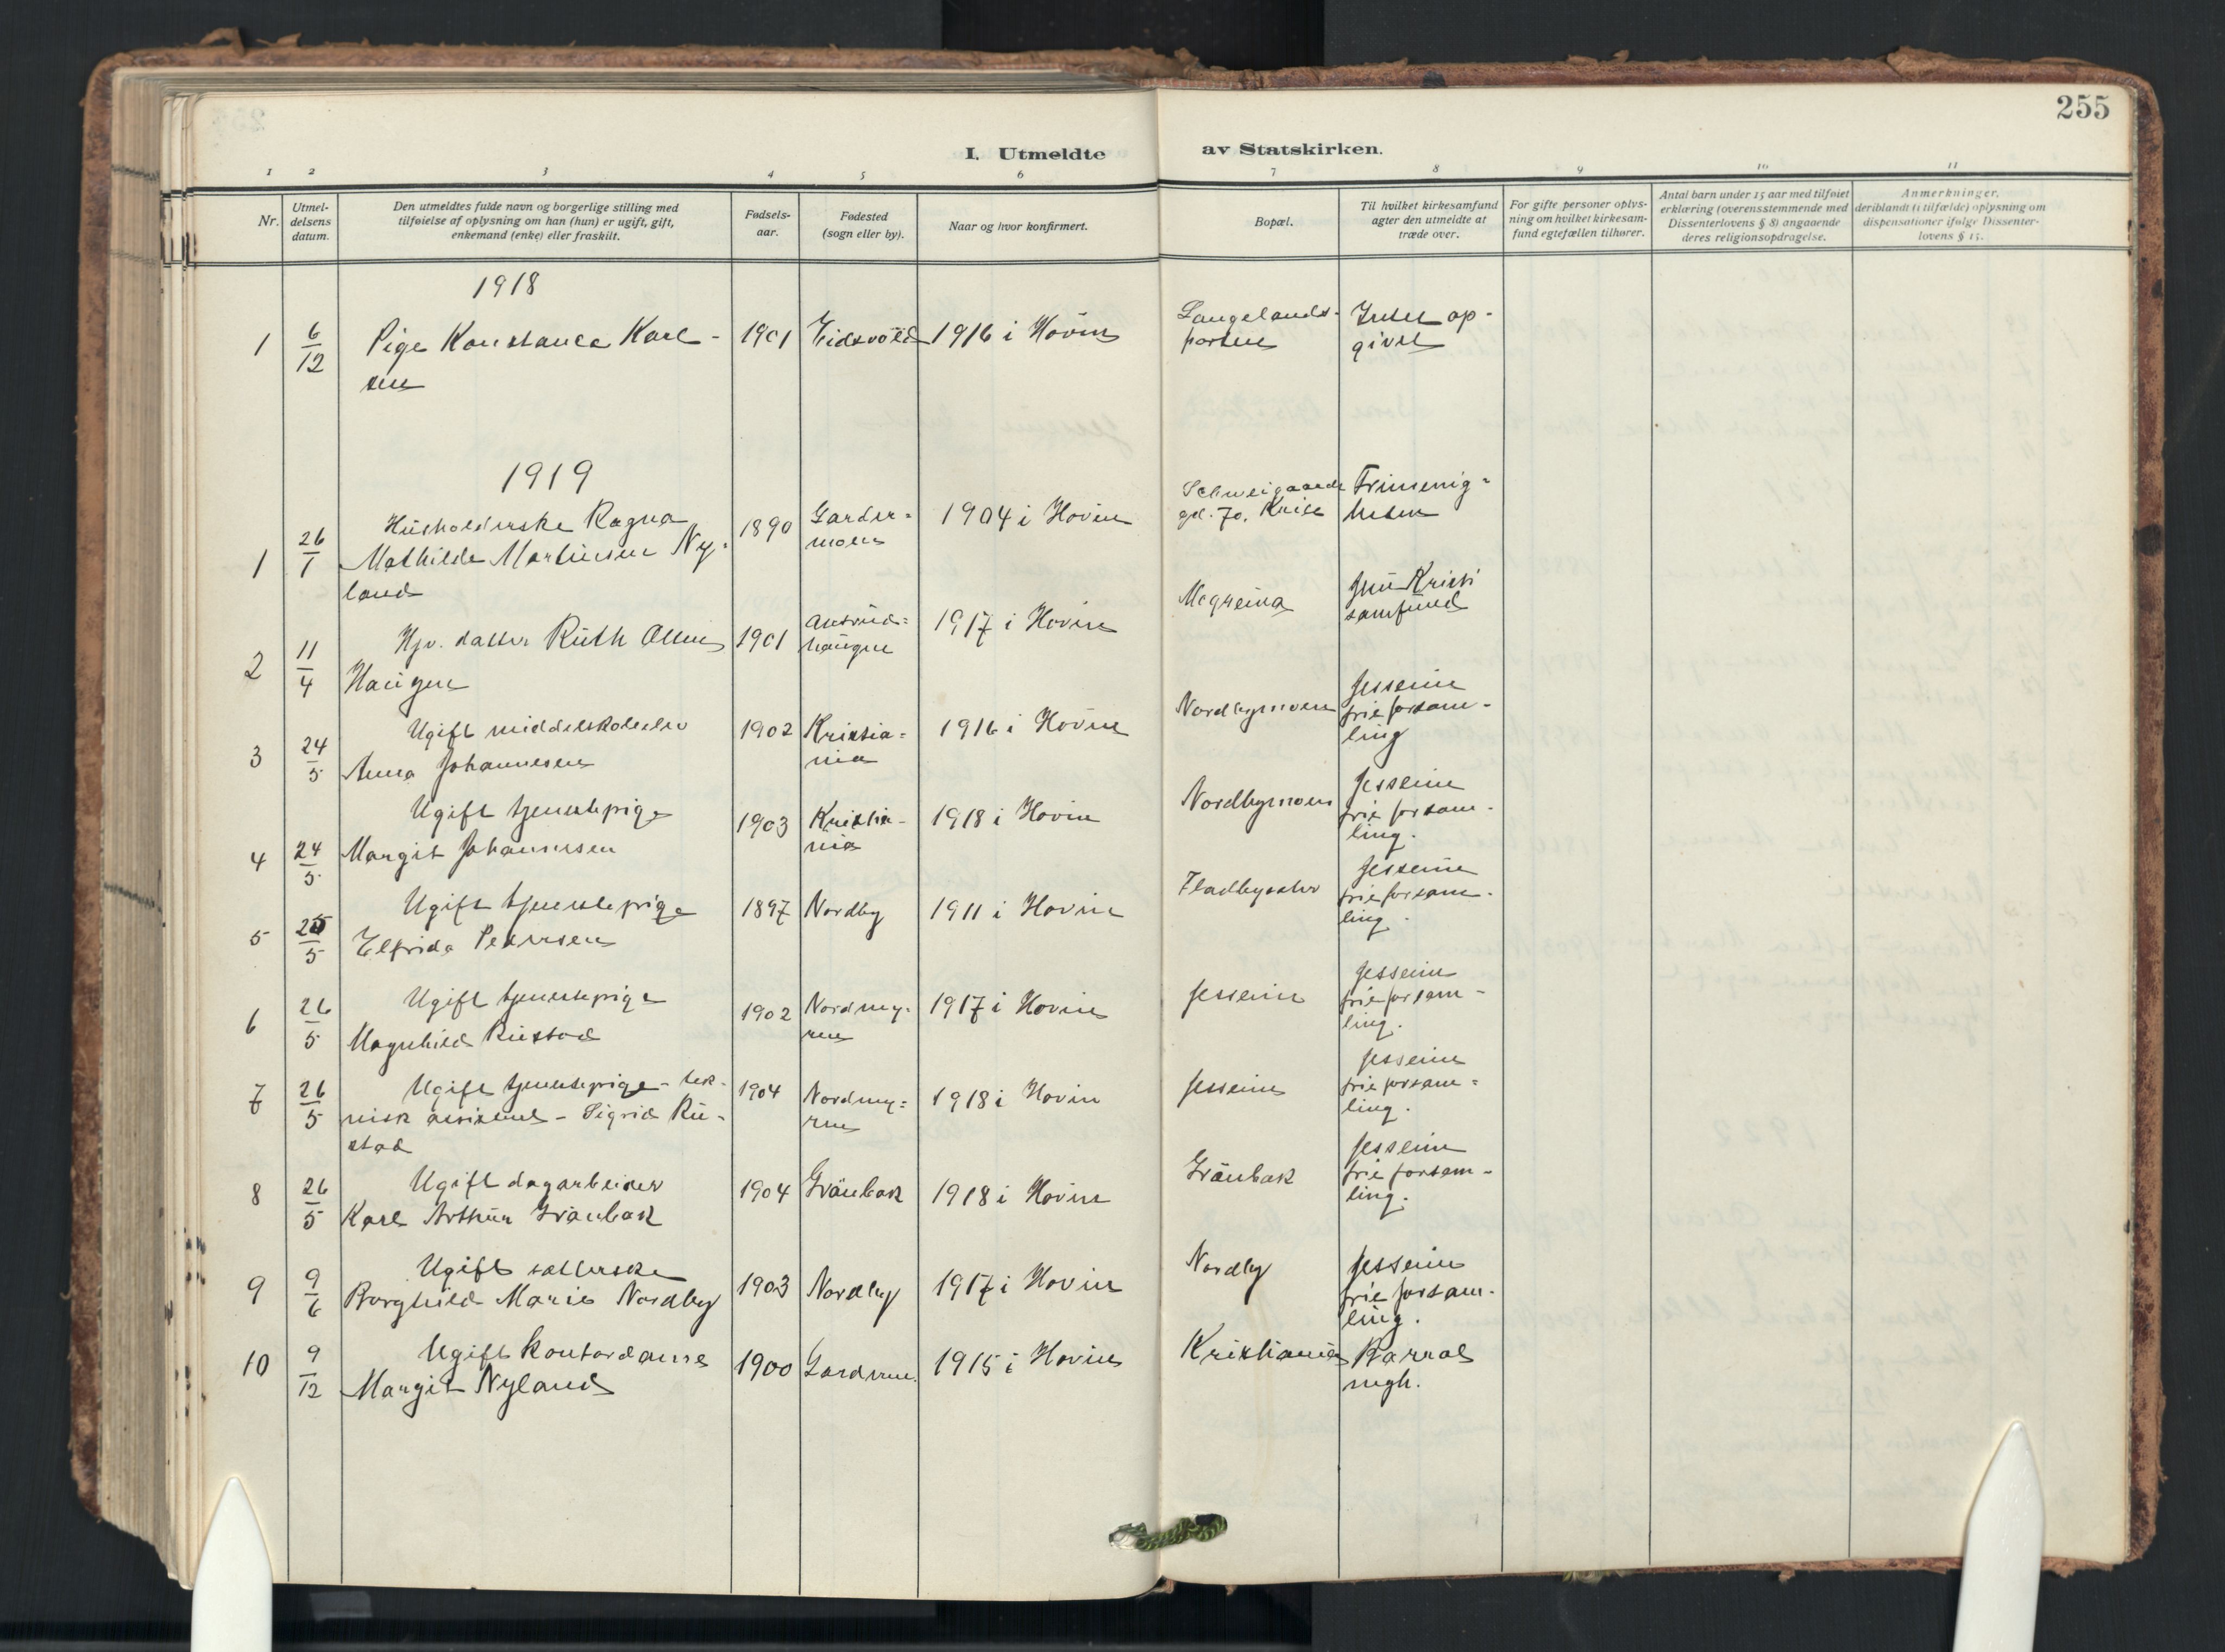 255
I. Utmeldte av Statskirken.
1 2 3 4 5 6 7 8 9 10 11
Nr.
Utmel-
delsens
datum.
Den utmeldtes fulde navn og borgerlige stilling med
tilføielse af oplysning om han (hun) er ugift, gift,
enkemand (enke) eller fraskilt.
Fødsels-
aar.
Fødested
(sogn eller by).
Naar og hvor konfirmert.
Bopæl.
Til hvilket kirkesamfund
agter den utmeldte at
træde over.
For gifte personer oplys-
ning om hvilket kirkesam-
fund egtefællen tilhører.
Antal barn under 15 aar med tilføiet
erklæring (overensstemmende med
Dissenterlovens § 8) angaaende
deres religionsopdragelse.
Anmerkninger,
deriblandt (i tilfælde) oplysning om
dispensationer ifølge Dissenter-
lovens § 15.
1918
1 6/12 Pige Konstance Karl-
sen
1901 Eidsvold 1916 i Hovin
Langelands-
porten
Intet op-
givet
1919
1 26/1 Husholderske Ragna
Mathilde Martinsen Ny-
land
1890 Garder-
moen
1904 i Hovin
Schweigaards
gd. 70. Kria
Frimenig-
heten
2 11/4 Hjv. datter Ruth
Haugen
1901
haugen
1917 i Hovin
Mogreina
samfund
3 24/5 Ugift middelskoleelev
Anna Johannesen
1902 Kristia-
nia
1916 i Hovin
Nordbymoen
Jesseim
frie forsam-
ling
4 24/5 Ugift tjenestepige
Margit Johannesen
1903 Kristia-
nia
1918 i Hovin
Nordbymoen
Jesseim
frie forsam-
ling.
5 Ugift tjenestepige
Elfrida Pedersen
1897 Nordby 1911 i Hovin
Jesseim
frie forsam-
ling.
6 26/5 Ugift tjenestepige
Magnhild Rustad
1902 Nordmy-
ren
1917 i Hovin
Jesseim
Jesseim
frie forsam-
ling.
7 26/5 Ugift tjenestepige - tek-
nisk assistent - Sigrid Ru-
stad
1904 Nordmy-
ren
1918 i Hovin
Jesseim
Jesseim
frie forsam-
ling.
8 26/5 Ugift dagarbeider
Karl Arthur Graubak
1904 Graubak 1918 i Hovin
Graubak
Jesseim
frie forsam-
ling.
9 9/6 Ugift sætterske
Borghild Marie Nordby
1903 Nordby 1917 i Hovin
Nordby
Jesseim
frie forsam-
ling.
10 9/12 Ugift kontordame
Margit Nyland
1900 1915 i Hovin
Kristiania
mgh.